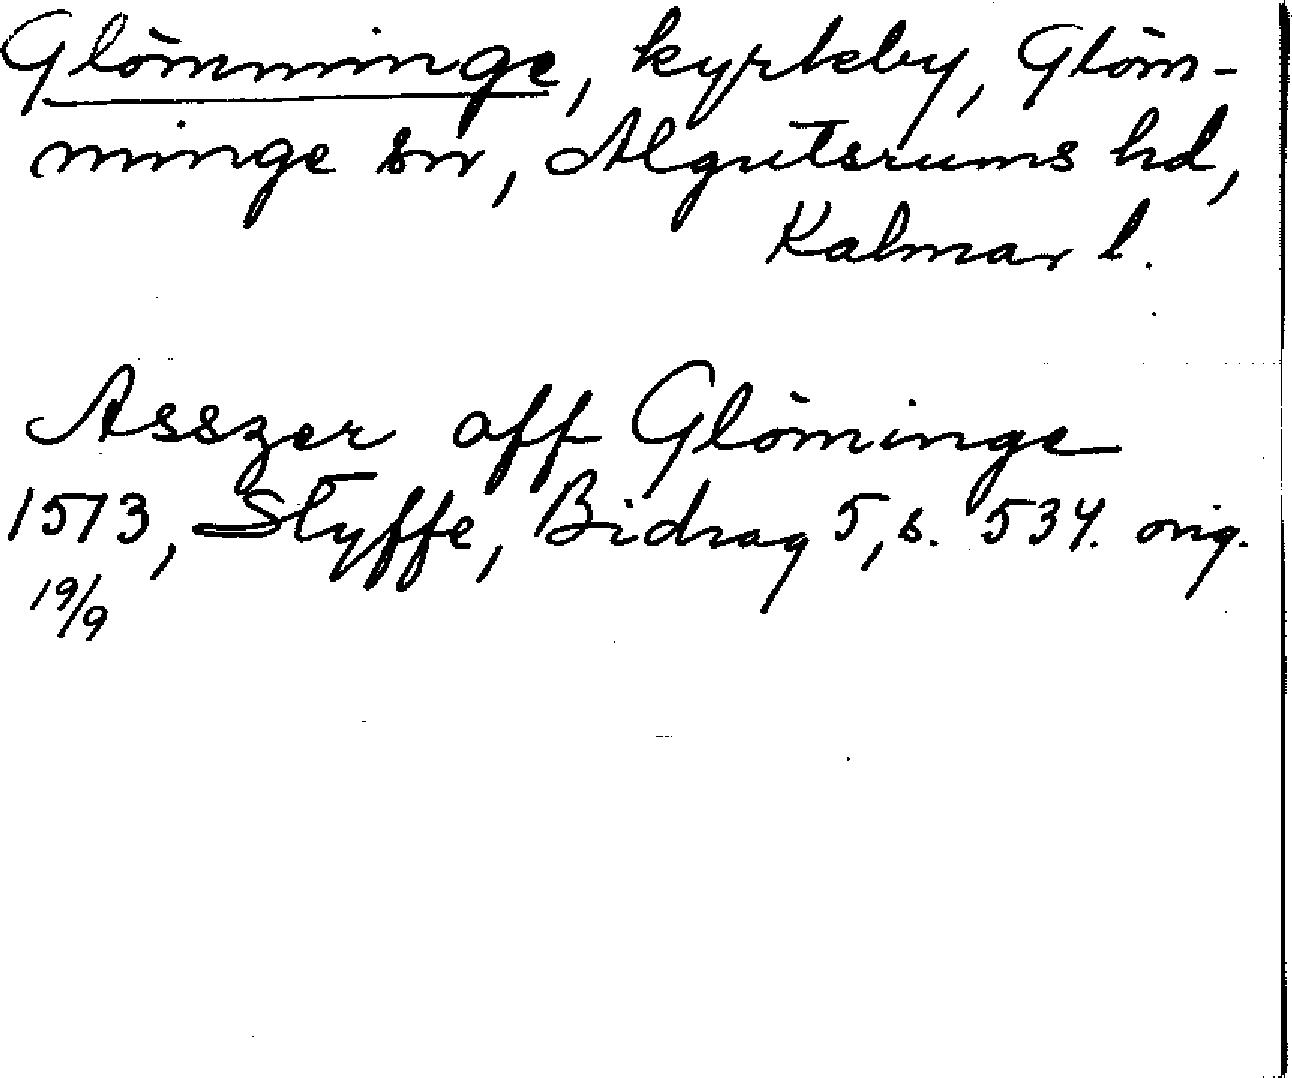 Glömminge, kyrkby, Glöm-
minge sn, Algutsrums hd,
Kalmar l.
Asszer aff Glöminge
1513, Styffe, Bidrag 5, s. 534. orig.
19/9